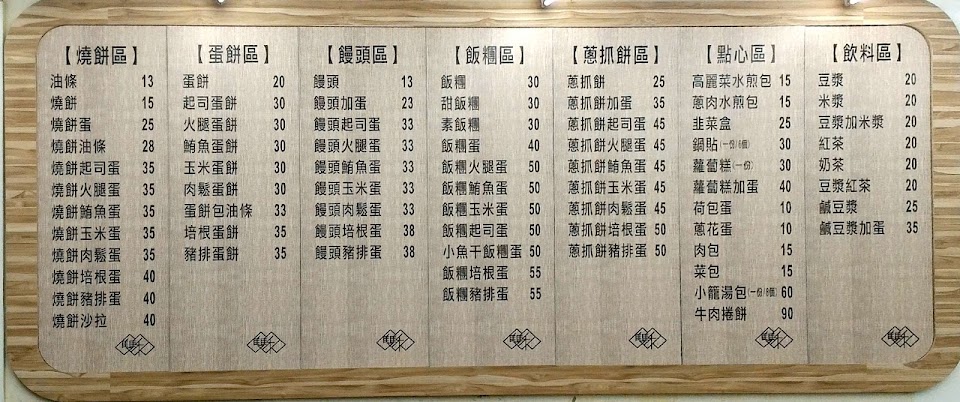 【燒餅區】
油條 13
燒餅 15
燒餅蛋 25
燒餅油條 28
燒餅起司蛋 35
燒餅火腿蛋 35
燒餅鮪魚蛋 35
燒餅玉米蛋 35
燒餅肉鬆蛋 35
燒餅培根蛋 40
燒餅豬排蛋 40
燒餅沙拉 40
【蛋餅區】
蛋餅 20
起司蛋餅 30
火腿蛋餅 30
鮪魚蛋餅 30
玉米蛋餅 30
肉鬆蛋餅 30
蛋餅包油條 33
培根蛋餅 35
豬排蛋餅 35
【饅頭區】
饅頭 13
饅頭加蛋 23
饅頭起司蛋 33
饅頭火腿蛋 33
饅頭鮪魚蛋 33
饅頭玉米蛋 33
饅頭肉鬆蛋 33
饅頭培根蛋 38
饅頭豬排蛋 38
【飯糰區】
飯糰 30
甜飯糰 30
素飯糰 30
飯糰蛋 40
飯糰火腿蛋 50
飯糰鮪魚蛋 50
飯糰玉米蛋 50
飯糰起司蛋 50
小魚干飯糰蛋 50
飯糰培根蛋 55
飯糰豬排蛋 55
【蔥抓餅區】
蔥抓餅 25
蔥抓餅加蛋 35
蔥抓餅起司蛋 45
蔥抓餅火腿蛋 45
蔥抓餅鮪魚蛋 45
蔥抓餅玉米蛋 45
蔥抓餅肉鬆蛋 45
蔥抓餅培根蛋 50
蔥抓餅豬排蛋 50
【點心區】
高麗菜水煎包 15
蔥肉水煎包 15
韭菜盒 25
鍋貼(一份/6個) 30
蘿蔔糕(一份) 30
蘿蔔糕加蛋 40
荷包蛋 10
蔥花蛋 10
肉包 15
菜包 15
小籠湯包(一份/8個) 60
牛肉捲餅 90
【飲料區】
豆漿 20
米漿 20
豆漿加米漿 20
紅茶 20
奶茶 20
豆漿紅茶 20
鹹豆漿 25
鹹豆漿加蛋 35